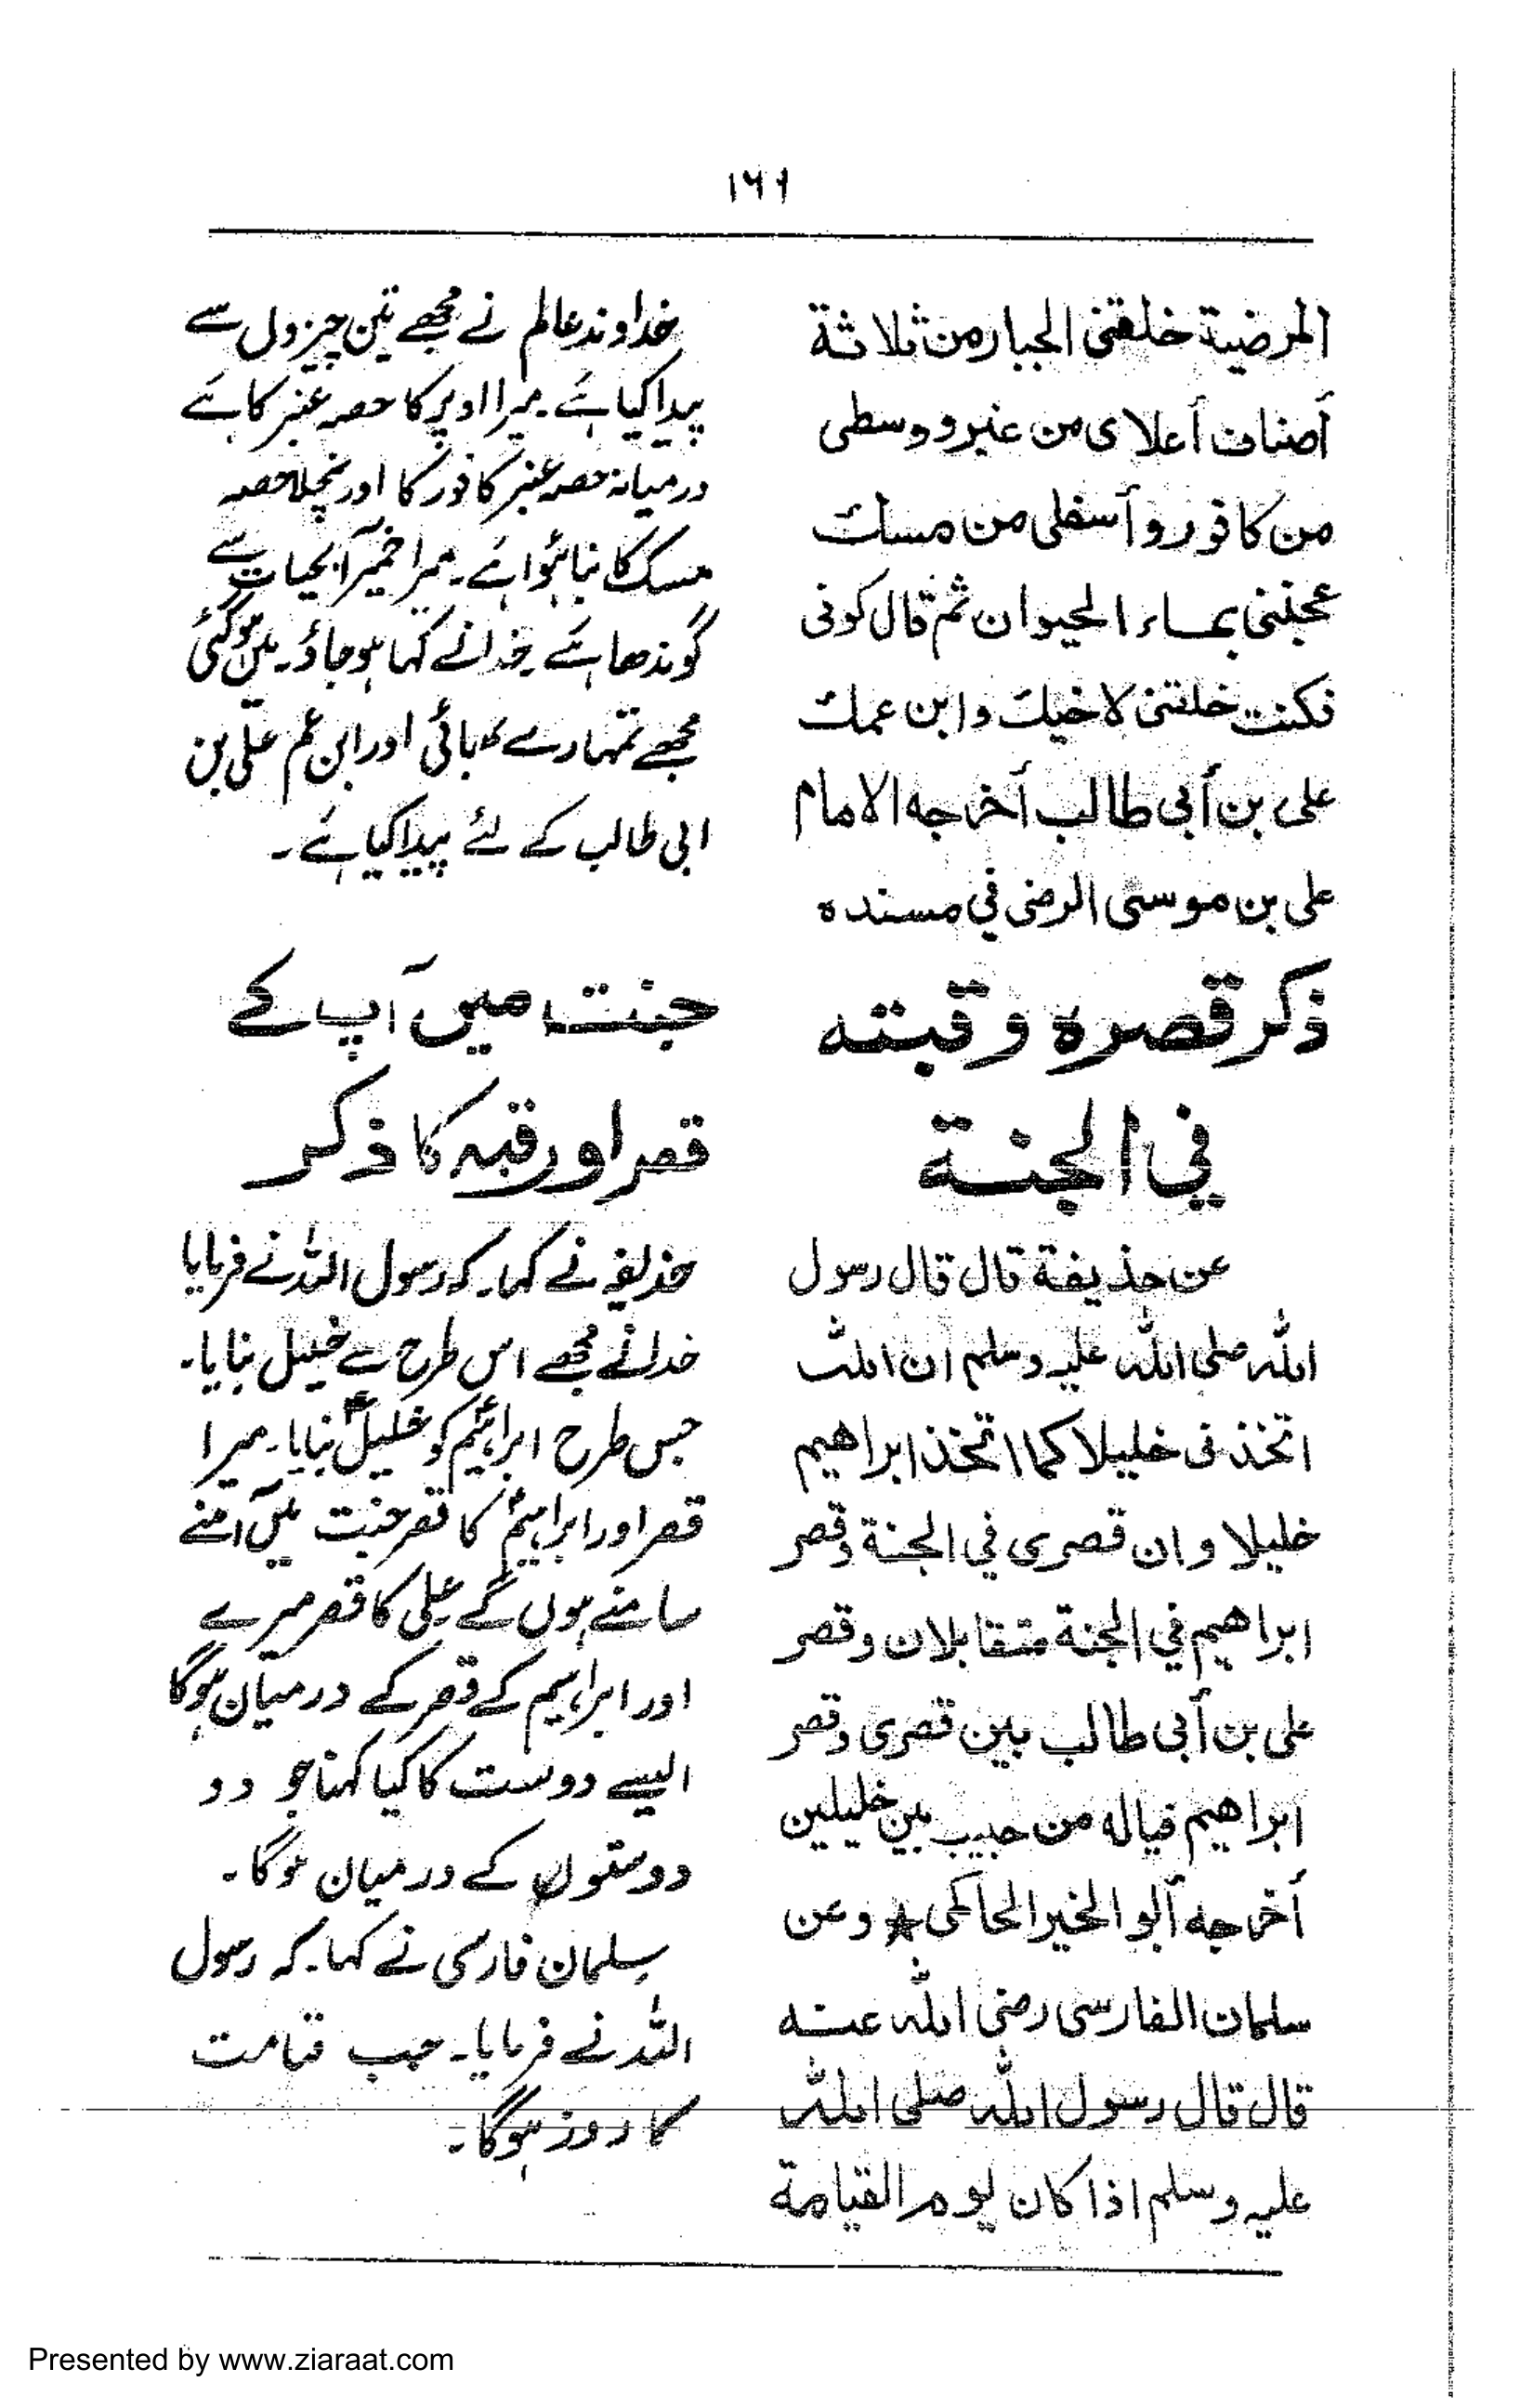 ۱۶۱
المرضية خلقنى الجبار من ثلاثة
أصناف أعلاى من عنبر ووسطى
من كافور وأسفلى من مسك
عجننى بماء الحيوان ثم قال كونى
فكنت خلقنى لاخيك وابن عمك
على بن أبى طالب أخرجه الامام
على بن موسى الرضى في مسنده
ذكر قصره وقبته
في الجنة
عن حذيفة قال قال رسول
الله صلى الله عليه وسلم ان الله
اتخذ نى خليلا كما اتخذ ابراهيم
خليلا وان قصرى في الجنة وقصر
ابراهيم في الجنة متقابلان وقصر
على بن أبى طالب بين قصرى وقصر
ابراهيم فياله من حبيب بين خليلين
أخرجه ألبو الخير الحاكمى * وعن
سلمان الفارسى رضى الله عنه
قال قال رسول الله صلى الله
عليه وسلم اذا كان يوم القيامة
خداوند عالم نے مجھے تین چیزوں سے
پیدا کیا ہے۔ میرا اوپر کا حصہ عنبر کا ہے
درمیانہ حصہ عنبر کافور کا اور نچلا حصہ
مسک کا بنا ہوا ہے۔ میرا خمیر آبحیات سے
گوندھا ہے۔ خدا نے کہا ہو جاؤ۔ میں ہو گئی
مجھے تمہارے بھائی اور ابن عم علی بن
ابی طالب کے لئے پیدا کیا ہے۔
جنت میں آپ کے
قصر اور قبہ کا ذکر
حذیفہ نے کہا۔ کہ رسول اللہ نے فرمایا
خدا نے مجھے اس طرح سے خلیل بنایا۔
جس طرح ابراہیمؑ کو خلیل بنایا۔ میرا
قصر اور ابراہیمؑ کا قصر جنت میں آمنے
سامنے ہوں گے علی کا قصر میرے
اور ابراہیم کے قصر کے درمیان ہوگا
ایسے دوست کا کیا کہنا جو دو
دوستوں کے درمیان ہوگا۔
سلمان فارسی نے کہا۔ کہ رسول
اللہ نے فرمایا۔ جب قیامت
کا روز ہوگا۔
Presented by www.ziaraat.com